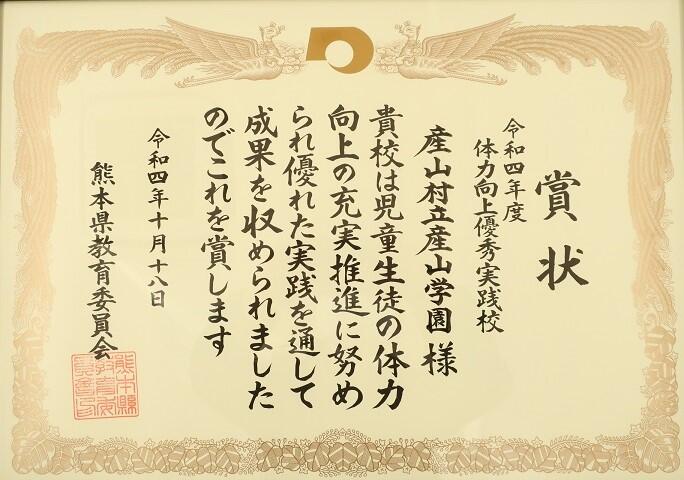 賞状
令和四年度
体力向上優秀実践校
産山村立産山学園様
貴校は児童生徒の体力
向上の充実推進に努め
られ優れた実践を通して
成果を収められました
のでこれを賞します
令和四年十月十八日
熊本県教育委員会
熊本縣
教育委
員會印